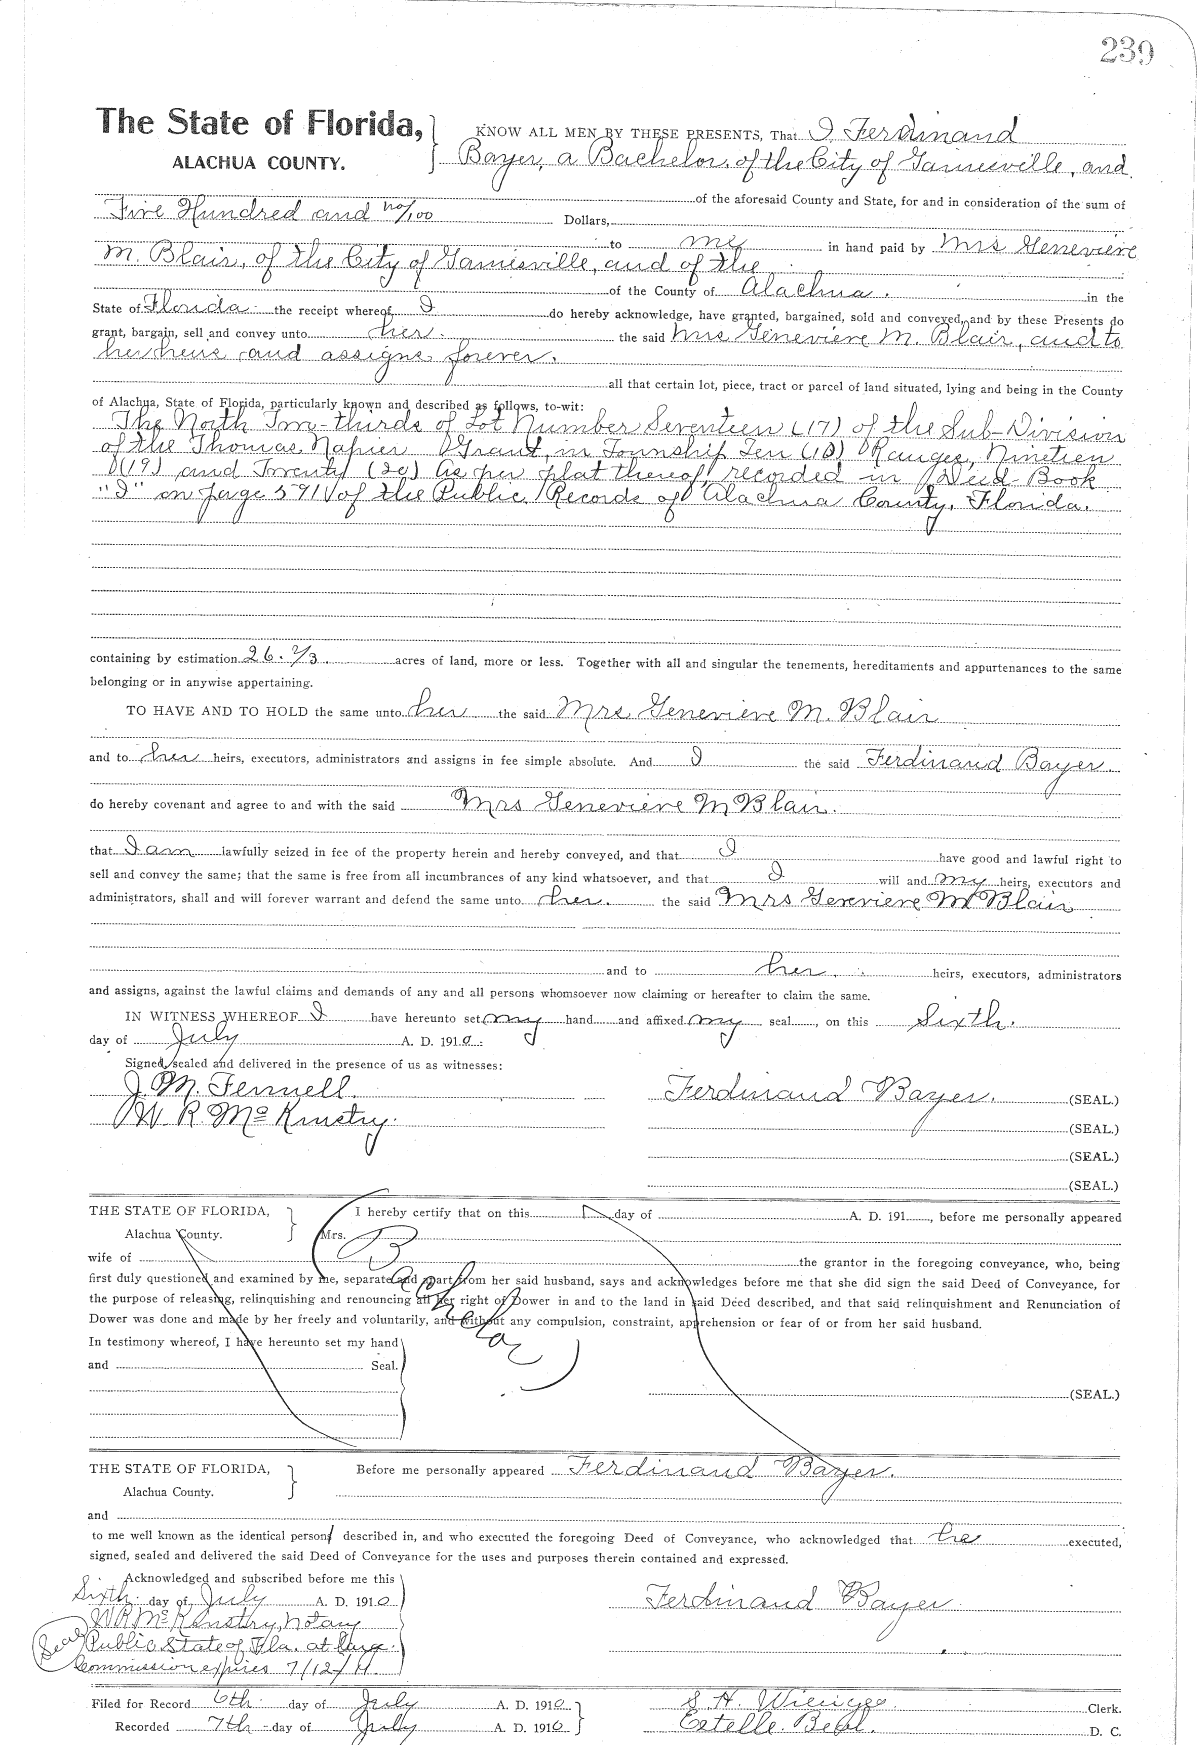 239
The State of Florida, KNOW ALL MEN BY THESE PRESENTS, That I, Ferdinand
ALACHUA COUNTY. Bayer, a Bachelor, of the City of Gainesville, and
of the aforesaid County and State, for and in consideration of the sum of
Five Hundred and no/100 Dollars,
to me in hand paid by Mrs Genevieve
M. Blair, of the City of Gainesville, and of the
of the County of Alachua. in the
State of Florida the receipt whereof I do hereby acknowledge, have granted, bargained, sold and conveyed, and by these Presents do
grant, bargain, sell and convey unto her. the said Mrs Genevieve M. Blair, and to
her heirs and assigns forever.
all that certain lot, piece, tract or parcel of land situated, lying and being in the County
of Alachua, State of Florida, particularly known and described as follows, to-wit:
The North Two-thirds of Lot Number Seventeen (17) of the Sub-Division
of the Thomas Napier Grant, in Township Ten (10) Ranges, Nineteen
(19) and Twenty (20) As per plat thereof, recorded in Deed Book
"I" on page 591 of the Public Records of Alachua County, Florida.
containing by estimation 26. 2/3 acres of land, more or less. Together with all and singular the tenements, hereditaments and appurtenances to the same
belonging or in anywise appertaining.
TO HAVE AND TO HOLD the same unto her the said Mrs Genevieve M. Blair
and to her heirs, executors, administrators and assigns in fee simple absolute. And I the said Ferdinand Bayer.
do hereby covenant and agree to and with the said Mrs Genevieve M Blair.
that I am lawfully seized in fee of the property herein and hereby conveyed, and that I have good and lawful right to
sell and convey the same; that the same is free from all incumbrances of any kind whatsoever, and that I will and my heirs, executors and
administrators, shall and will forever warrant and defend the same unto her. the said Mrs Genevieve M Blair
and to her. heirs, executors, administrators
and assigns, against the lawful claims and demands of any and all persons whomsoever now claiming or hereafter to claim the same.
IN WITNESS WHEREOF I have hereunto set my hand and affixed my seal, on this Sixth.
day of July A. D. 1910.
Signed, sealed and delivered in the presence of us as witnesses:
J. M. Fennell. Ferdinand Bayer. (SEAL.)
W. R. McKinstry. (SEAL.)
(SEAL.)
(SEAL.)
THE STATE OF FLORIDA, I hereby certify that on this day of A. D. 191, before me personally appeared
Alachua County. Mrs.
wife of the grantor in the foregoing conveyance, who, being
first duly questioned and examined by me, separate and apart from her said husband, says and acknowledges before me that she did sign the said Deed of Conveyance, for
the purpose of releasing, relinquishing and renouncing all her right of Dower in and to the land in said Deed described, and that said relinquishment and Renunciation of
Dower was done and made by her freely and voluntarily, and without any compulsion, constraint, apprehension or fear of or from her said husband.
(Bachelor)
In testimony whereof, I have hereunto set my hand
and Seal.
(SEAL.)
THE STATE OF FLORIDA, Before me personally appeared Ferdinand Bayer.
Alachua County.
and
to me well known as the identical person described in, and who executed the foregoing Deed of Conveyance, who acknowledged that he executed,
signed, sealed and delivered the said Deed of Conveyance for the uses and purposes therein contained and expressed.
Acknowledged and subscribed before me this
Sixth day of July A. D. 1910 Ferdinand Bayer
W R McKinstry, Notary
(Seal) Public State of Fla. at large.
Commission expires 7/12/11.
Filed for Record 6th day of July A. D. 1910 S. H. Wienges Clerk.
Recorded 7th day of July A. D. 1910 Estelle D. C.